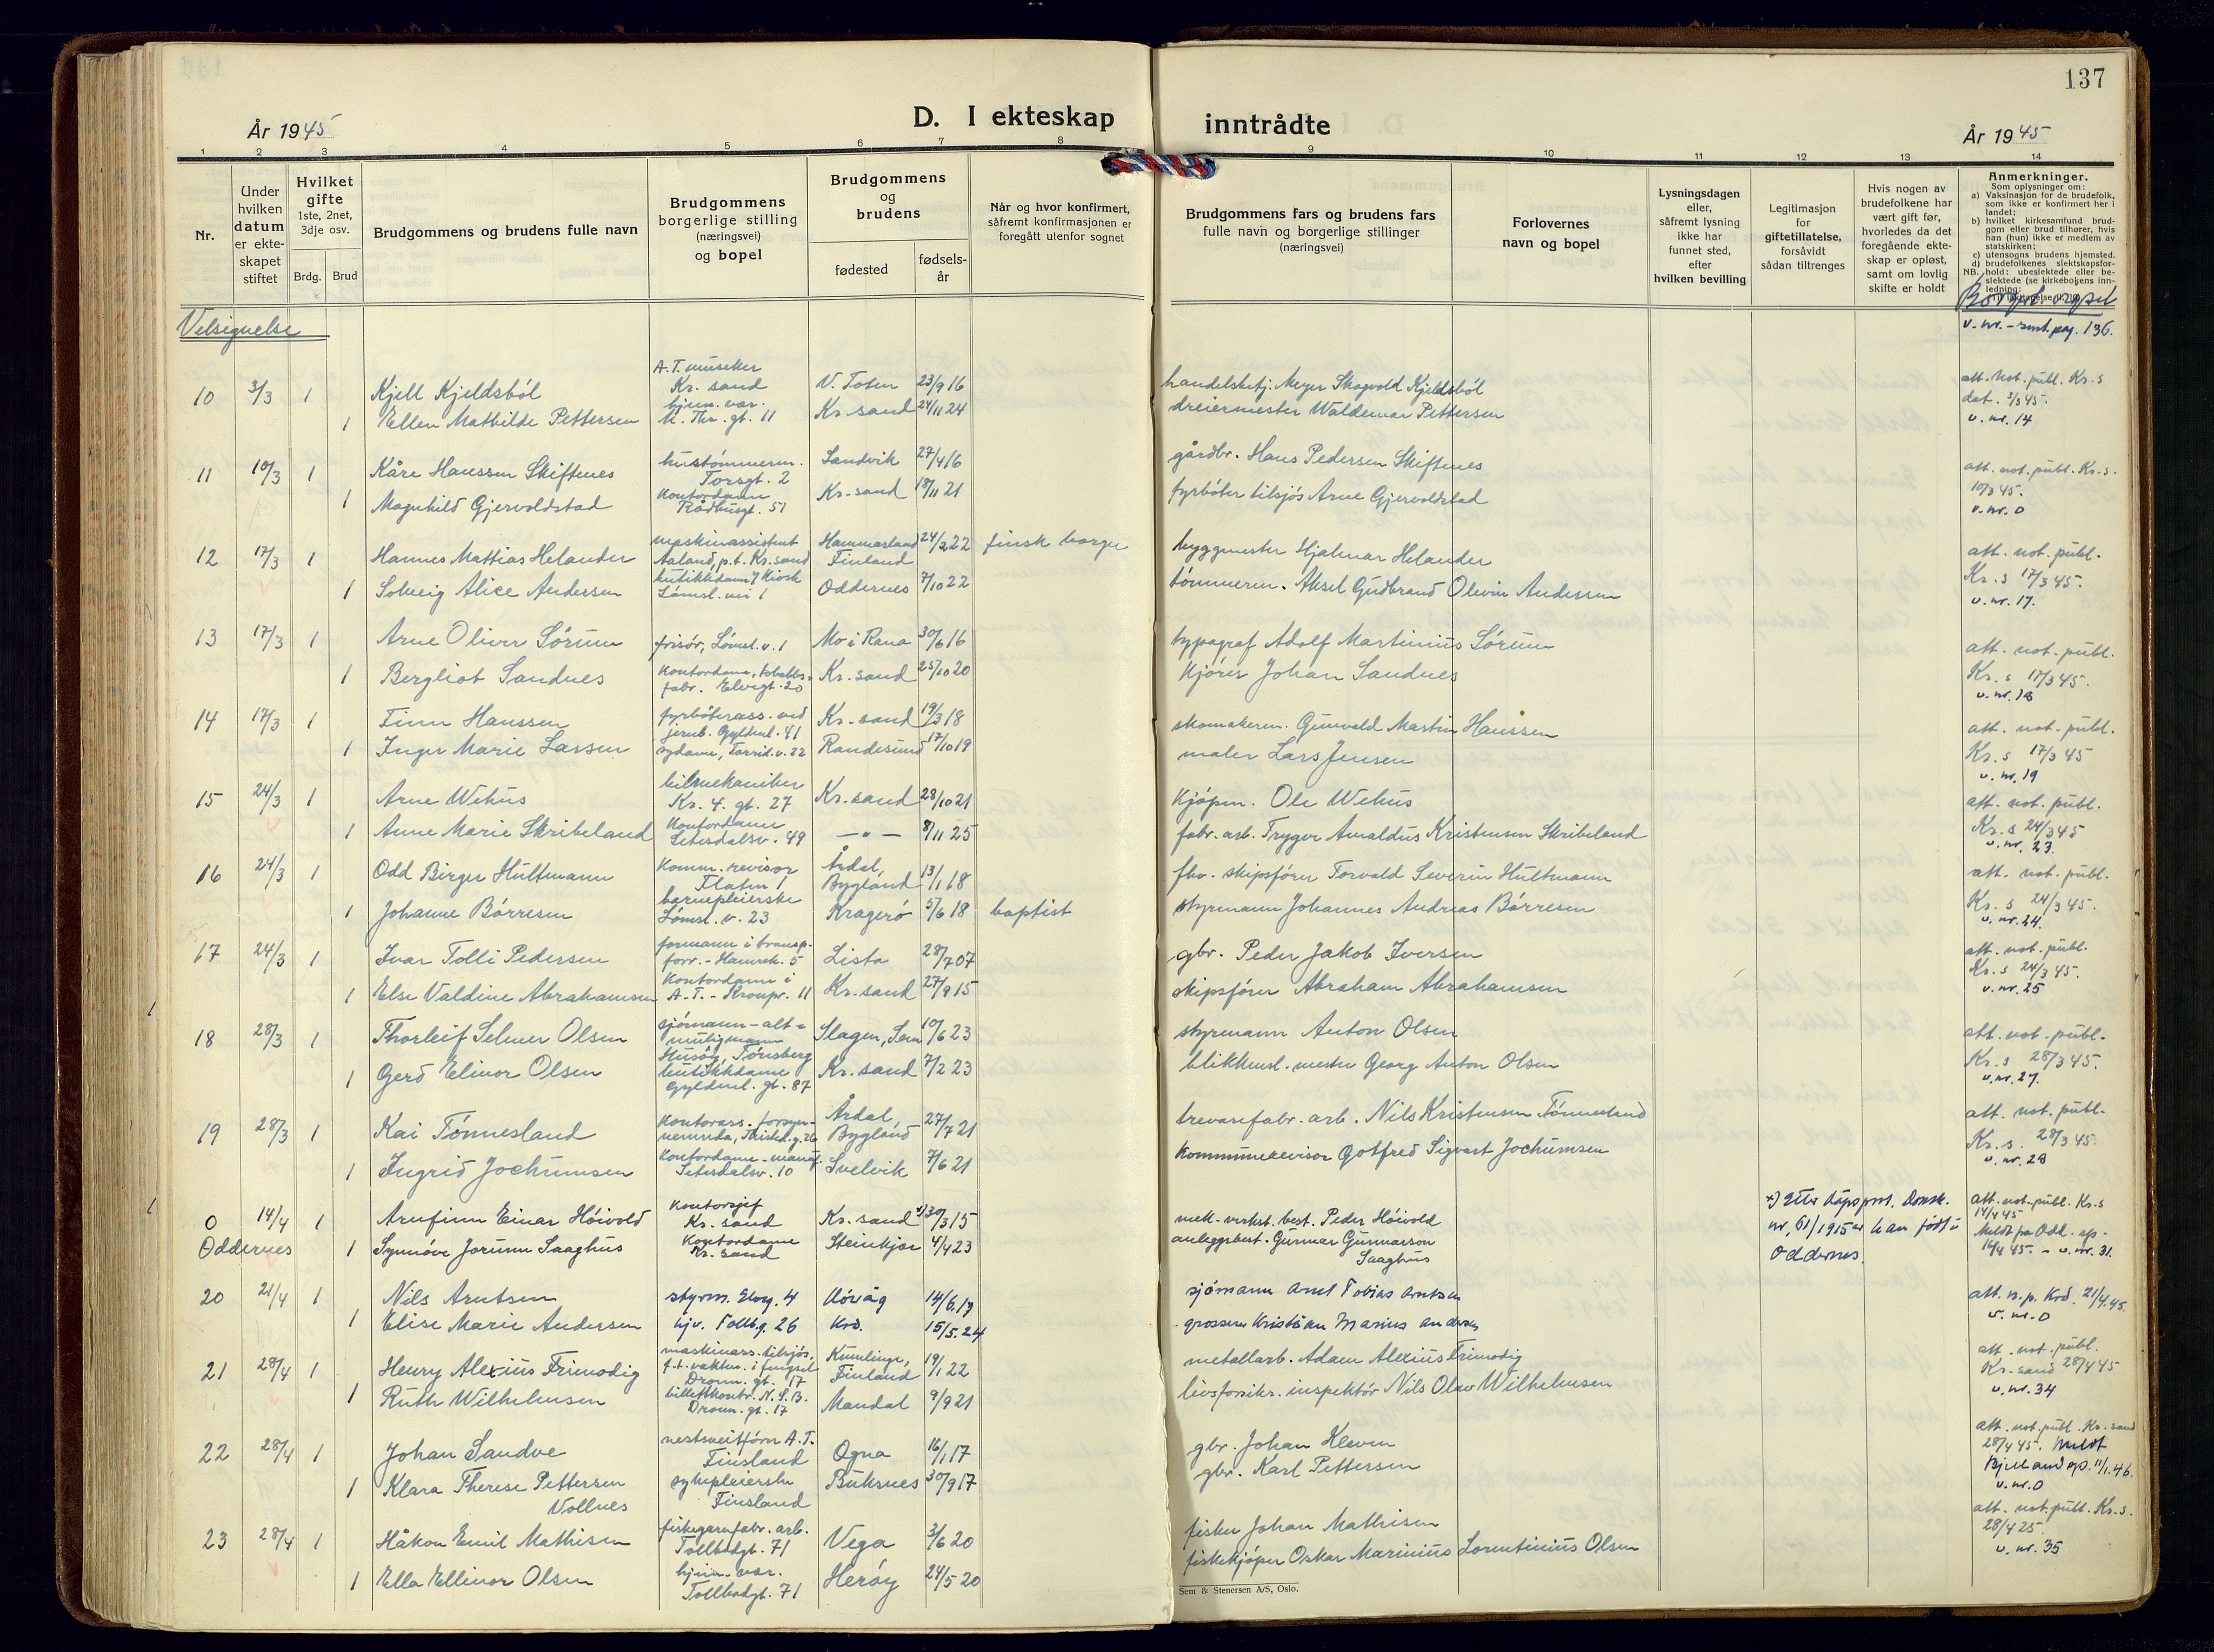 137
D. I ekteskap inntrådte
År 1945
År 1945
1 2 3 4 5 6 7 8 9 10 11 12 13 14
Nr.
Under hvilken datum er ekte-skapet stiftet
Hvilket gifte
1ste, 2net, 3dje osv.
Brdg. Brud
Brudgommens og brudens fulle navn
Brudgommens borgerlige stilling (næringsvei) og bopel
Brudgommens og brudens
fødested
fødsels-år
Når og hvor konfirmert, såfremt konfirmasjonen er foregått utenfor sognet
Brudgommens fars og brudens fars fulle navn og borgerlige stillinger (næringsvei)
Forlovernes navn og bopel
Lysningsdagen eller, såfremt lysning ikke har funnet sted, efter hvilken bevilling
Legitimasjon for giftetillatelse, forsåvidt sådan tiltrenges
Hvis nogen av brudefolkene har vært gift før, hvorledes da det foregående ekte-skap er opløst, samt om lovlig skifte er holdt
Anmerkninger.
Som oplysninger om:
a) Vaksinasjon for de brudefolk, som ikke er konfirmert her i landet;
b) hvilket kirkesamfund brud-gom eller brud tilhører, hvis han (hun) ikke er medlem av statskirken;
c) utensogns brudens hjemsted.
d) brudefolkenes slektskapsfor-hold: ubeslektede eller be-slektede (se kirkebokens inn-ledning:
NB.
Borgerl. vigsel
v. nr. - smt. pag. 136.
Velsignelse
10 3/3 1 Kjell Kjeldsböl A.T. musiker Kr. sand V. Toten 23/9 16 handelsbetj. Meyer Skogvold Kjeldsböl att. not. publ. Kr. s
1 Ellen Mathilde Pettersen hjem. var. M. Thr. gt. 11 Kr. sand 24/11 24 dreiermester Waldemar Pettersen dat. 3/3 45. v. nr. 14
11 10/3 1 Kåre Hanssen Skiftenes hustömmerm. Torsgt. 2 Sandvik 27/4 16 gårdbr. Hans Pedersen Skiftenes att. not. publ. Kr. s.
1 Magnhild Gjervoldstad Kontordame Rådhusgt. 51 Kr. sand 18/11 21 fyrböter tilsjös Arne Gjervoldstad 10/3 45. v. nr. 0
12 17/3 1 Hannes Mattias Helander maskinassistent Aaland, p.t. Kr. sand Hammarland Finland 24/2 22 finsk borger byggmester Hjalmar Helander att. not. publ.
1 Solveig Alice Andersen butikkdame i Kiosk Lömsl. vei 1 Oddernes 7/10 22 tömmerm. Aksel Gudbrand Olevin Andersen Kr. s 17/3 45. v. nr. 17.
13 17/3 1 Arne Oliver Sörum frisör, Lömsl. v. 1 Mo i Rana 30/6 16 typograf Adolf Martinius Sörum att. not. publ.
1 Bergliot Sandnes Kontordame, tobakks-fabr. Elvegt. 20 Kr. sand 25/10 20 Kjörer Johan Sandnes Kr. s 17/3 45. v. nr. 18
14 17/3 1 Finn Hanssen fyrböterass. ved jernb. Gyldenl. 41 Kr. sand 19/3 18 skomakerm. Gunvald Martin Hanssen att. not. publ.
1 Inger Marie Larsen sydame, Torrid. v. 22 Randesund 17/10 19 maler Lars Jensen Kr. s 17/3 45 v. nr. 19
15 24/3 1 Arne Wehus bilmekaniker Kr. 4. gt. 27 Kr. sand 28/10 21 Kjöpm. Ole Wehus att. not. publ.
1 Anne Marie Skribeland Kontordame Setesdalsv. 49 — " — 8/11 25 fabr. arb. Trygve Arnaldus Kristensen Skribeland Kr. s 24/3 45 v. nr. 23.
16 24/3 1 Odd Birger Hultmann Komm. revisor Flaten 1 Årdal, Bygland 13/1 18 fhv. skipsförer Torvald Severin Hultmann att. not. publ.
1 Johanne Börresen barnepleierske Lömsl. v. 23 Kragerö 5/6 18 baptist styrmann Johannes Andreas Börresen Kr. s. 24/3 45. v. nr. 24.
17 24/3 1 Ivar Tolli Pedersen formann i transp. forr. - Hamrek. 5 Lista 28/7 07 gbr. Peder Jakob Iversen att. not. publ.
1 Else Valdine Abrahamsen Kontordame i A.T. - Kronpr. 11 Kr. sand 27/9 15 skipsförer Abraham Abrahamsen Kr. s 24/3 45. v. nr. 25
18 28/3 1 Thorleif Selmer Olsen sjömann - alt-muligmann Husöy, Tönsberg Slagen, Sem 10/6 23 styrmann Anton Olsen att. not. publ.
1 Gerd Elinor Olsen butikkdame Gyldenl. gt. 87 Kr. sand 7/2 23 blikkensl. mester Georg Anton Olsen Kr. s 28/3 45. v. nr. 27.
19 28/3 1 Kai Tönnesland Kontorass. forsyn-nemnda, Tkisted. g. 26 Årdal, Bygland 27/7 21 trevarefabr. arb. Nils Kristensen Tönnesland att. not. publ.
1 Ingrid Jochumsen Kontordame - manuf. Setesdalsv. 10 Svelvik 7/6 21 Kommunerevisor Gotfred Sigvart Jochumsen Kr. s. 28/3 45. v. nr. 28
0 14/4 1 Arnfinn Einar Höivold Kontorsjef Kr. sand Kr. sand x) 30/3 15 mek. verkst. best. Peder Höivold x) Etter dåpsprot. Domk. nr. 61/1915 er han født i Oddernes. att. not. publ. Kr. s 14/4 45
Oddernes 1 Synnöve Jorunn Saaghus Kontordame Kr. sand Steinkjer 4/4 23 anleggsbest. Gunnar Gunnarson Saaghus Meldt pa Odd. sp. 16/4 45. - v. nr. 31.
20 21/4 1 Nils Arntsen styrm. Elveg. 4 Hövåg 14/6. 19 sjömann Anel Tobias Arntsen att. n. p. Krd. 21/4. 45.
1 Elise Marie Andersen hjv. Tollbg. 26 Krd. 15/5. 24 grosserer Kristian Marius Andersen v. nr. 0
21 28/4 1 Henry Alexius Frimodig maskinass. tilsjös, f.t. vaktm. i fengsel Dronn. gt. 17 Kumlinge, Finland 19/1 22 metallarb. Adam Alexius Frimodig att. not. publ.
1 Ruth Wilhelmsen billettkontr. N.S.B. Dronn. gt. 17 Mandal 9/9 21 livsforsikr. inspektör Nils Olav Wilhelmsen Kr. sand 28/4 45 v. nr. 34
22 28/4 1 Johan Sandve A.T. Finsland Ogna 16/1 17 gbr. Johan Kleven att. not. publ. Kr. sand 28/4 45. Meldt
1 Klara Therese Pettersen Vollnes sykepleierske Finsland Buksnes 30/9 17 gbr. Karl Pettersen Bjelland sp. 11/1. 46. v. nr. 0
23 28/4 1 Håkon Emil Mathisen fiskegarnfabr. arb. Tollbodgt. 71 Vega 3/6 20 fisker Johan Mathisen att. not. publ. Kr. s. 28/4 25.
1 Ella Ellinor Olsen hjem. var. Tollbodgt. 71 Heröy 24/5 20 fiskekjöper Oskar Marinius Lorentinius Olsen v. nr. 35
Sem & Stenersen A/S, Oslo.